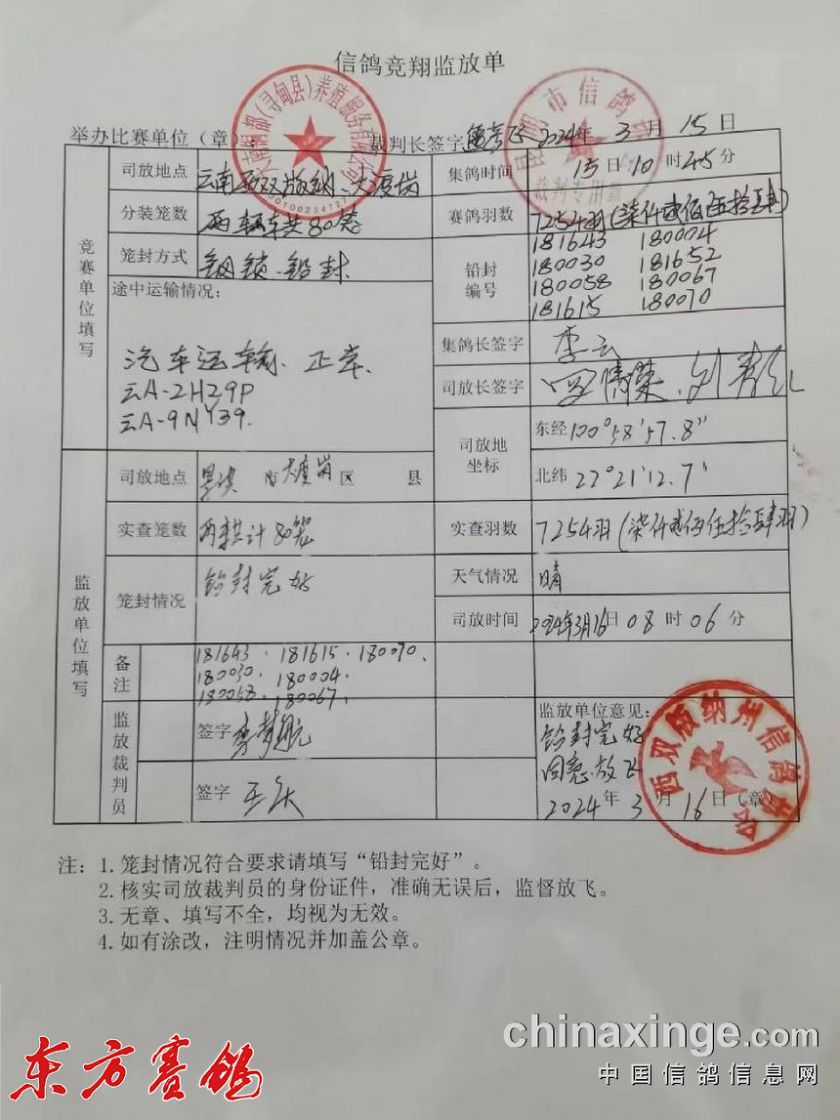 信鸽竞翔监放单
举办比赛单位（章）： 裁判长签字 2024年 3月 15日
司放地点 云南西双版纳、大渡岗 集鸽时间 15日 10时45分
分装笼数 两辆车共80笼 赛鸽羽数 7254羽(柒仟贰佰伍拾肆)
竞赛单位填写
笼封方式 钢锁、铅封 铅封编号
181643 180004
180030 181652
180058 180067
181615 180070
途中运输情况：
汽车运输、正常.
云A-2H29P
云A-9NY39.
集鸽长签字 李云
司放长签字
司放地坐标 东经 100°58'57.8"
北纬 22°21'12.7"
监放单位填写
司放地点 市 大渡岗 区 县
实查笼数 两车共计80笼 实查羽数 7254羽(柒仟贰佰伍拾肆羽)
笼封情况 铅封完好 天气情况 晴
司放时间 2024年3月16日08时06分
备注 181643、181615、180070、
180030、180004、
180058、180067、
监放裁判员
签字 李梦航
签字
监放单位意见：
铅封完好
同意放飞
2024年 3月 16日（章）
西双版纳州信鸽协会
昆明市信鸽协会
裁判专用章
注：1.笼封情况符合要求请填写“铅封完好”。
2.核实司放裁判员的身份证件，准确无误后，监督放飞。
3.无章、填写不全，均视为无效。
4.如有涂改，注明情况并加盖公章。
东方赛鸽
chinaxinge.com
中国信鸽信息网